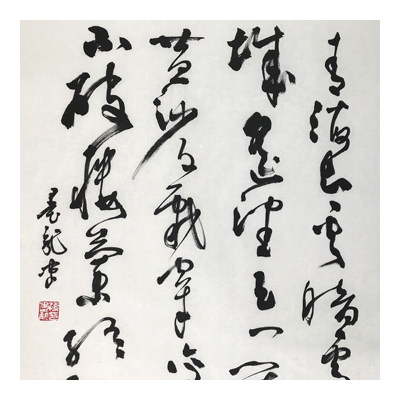 青海长云暗雪
城遥望玉门
黄沙百战穿金
不破楼兰终
墨龙